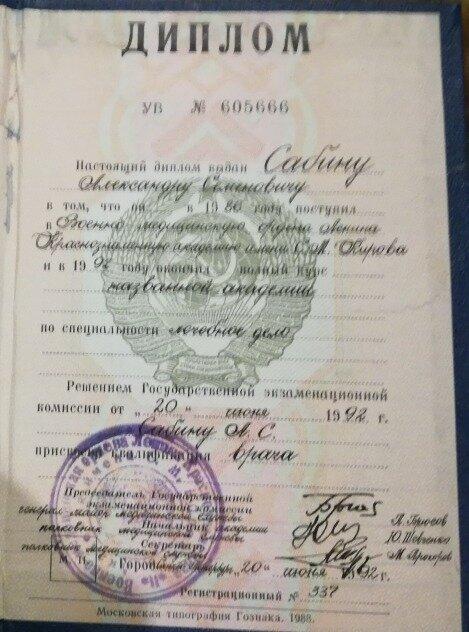 ДИПЛОМ
УВ № 605666
Настоящий диплом выдан Сабину
Александру Семеновичу
в том, что он в 1986 году поступил
в Военно-медицинскую ордена Ленина
Краснознаменную академию имени С.М. Кирова
и в 1992 году окончил полный курс
названной академии
по специальности лечебное дело
Решением Государственной экзаменационной
комиссии от „20" июня 1992 г.
Сабину А.С.
присвоена квалификация врача
Председатель Государственной
экзаменационной комиссии
генерал-майор медицинской службы П. Брюсов
Начальник академии
полковник медицинской службы Ю. Шевченко
Секретарь
полковник медицинской службы М.
М. П. Город „20" июня 1992 г.
Регистрационный № 337
Московская типография Гознака. 1988.